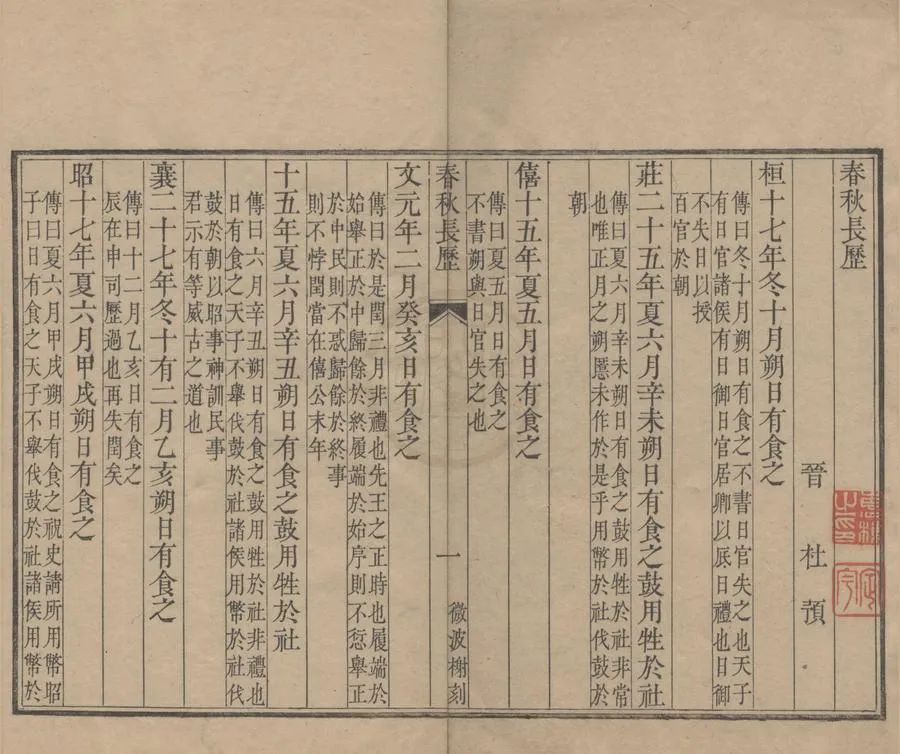 春秋長歷
晉 杜預
桓十七年冬十月朔日有食之
傳曰冬十月朔日有食之不書日官失之也天子
有日官諸侯有日御日官居卿以底日禮也日御
不失日以授
百官於朝
莊二十五年夏六月辛未朔日有食之鼓用牲於社
傳曰夏六月辛未朔日有食之鼓用牲於社非常
也唯正月之朔慝未作於是乎用幣於社伐鼓於
朝
僖十五年夏五月日有食之
傳曰夏五月日有食之
不書朔與日官失之也
春秋長歷
一
微波榭刻
文元年二月癸亥日有食之
傳曰於是閏三月非禮也先王之正時也履端於
始舉正於中歸餘於終履端於始序則不愆舉正
於中民則不惑歸餘於終事
則不悖閏當在僖公末年
十五年夏六月辛丑朔日有食之鼓用牲於社
傳曰六月辛丑朔日有食之鼓用牲於社非禮也
日有食之天子不舉伐鼓於社諸侯用幣於社伐
鼓於朝以昭事神訓民事
君示有等威古之道也
襄二十七年冬十有二月乙亥朔日有食之
傳曰十二月乙亥日有食之
辰在申司歷過也再失閏矣
昭十七年夏六月甲戌朔日有食之
傳曰夏六月甲戌朔日有食之祝史請所用幣昭
子曰日有食之天子不舉伐鼓於社諸侯用幣於